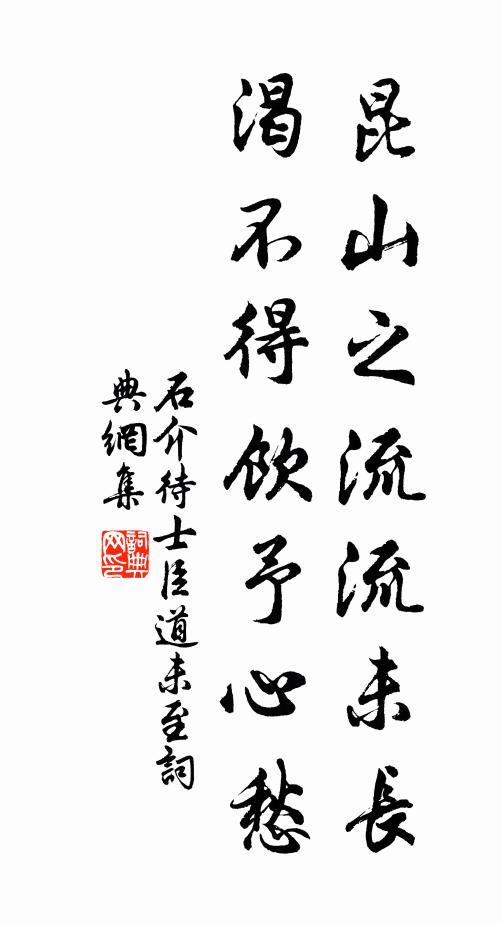 昆山之流流未長
渴不得飲予心愁
石介待士臣道未至詞
典網集
詞典
网印